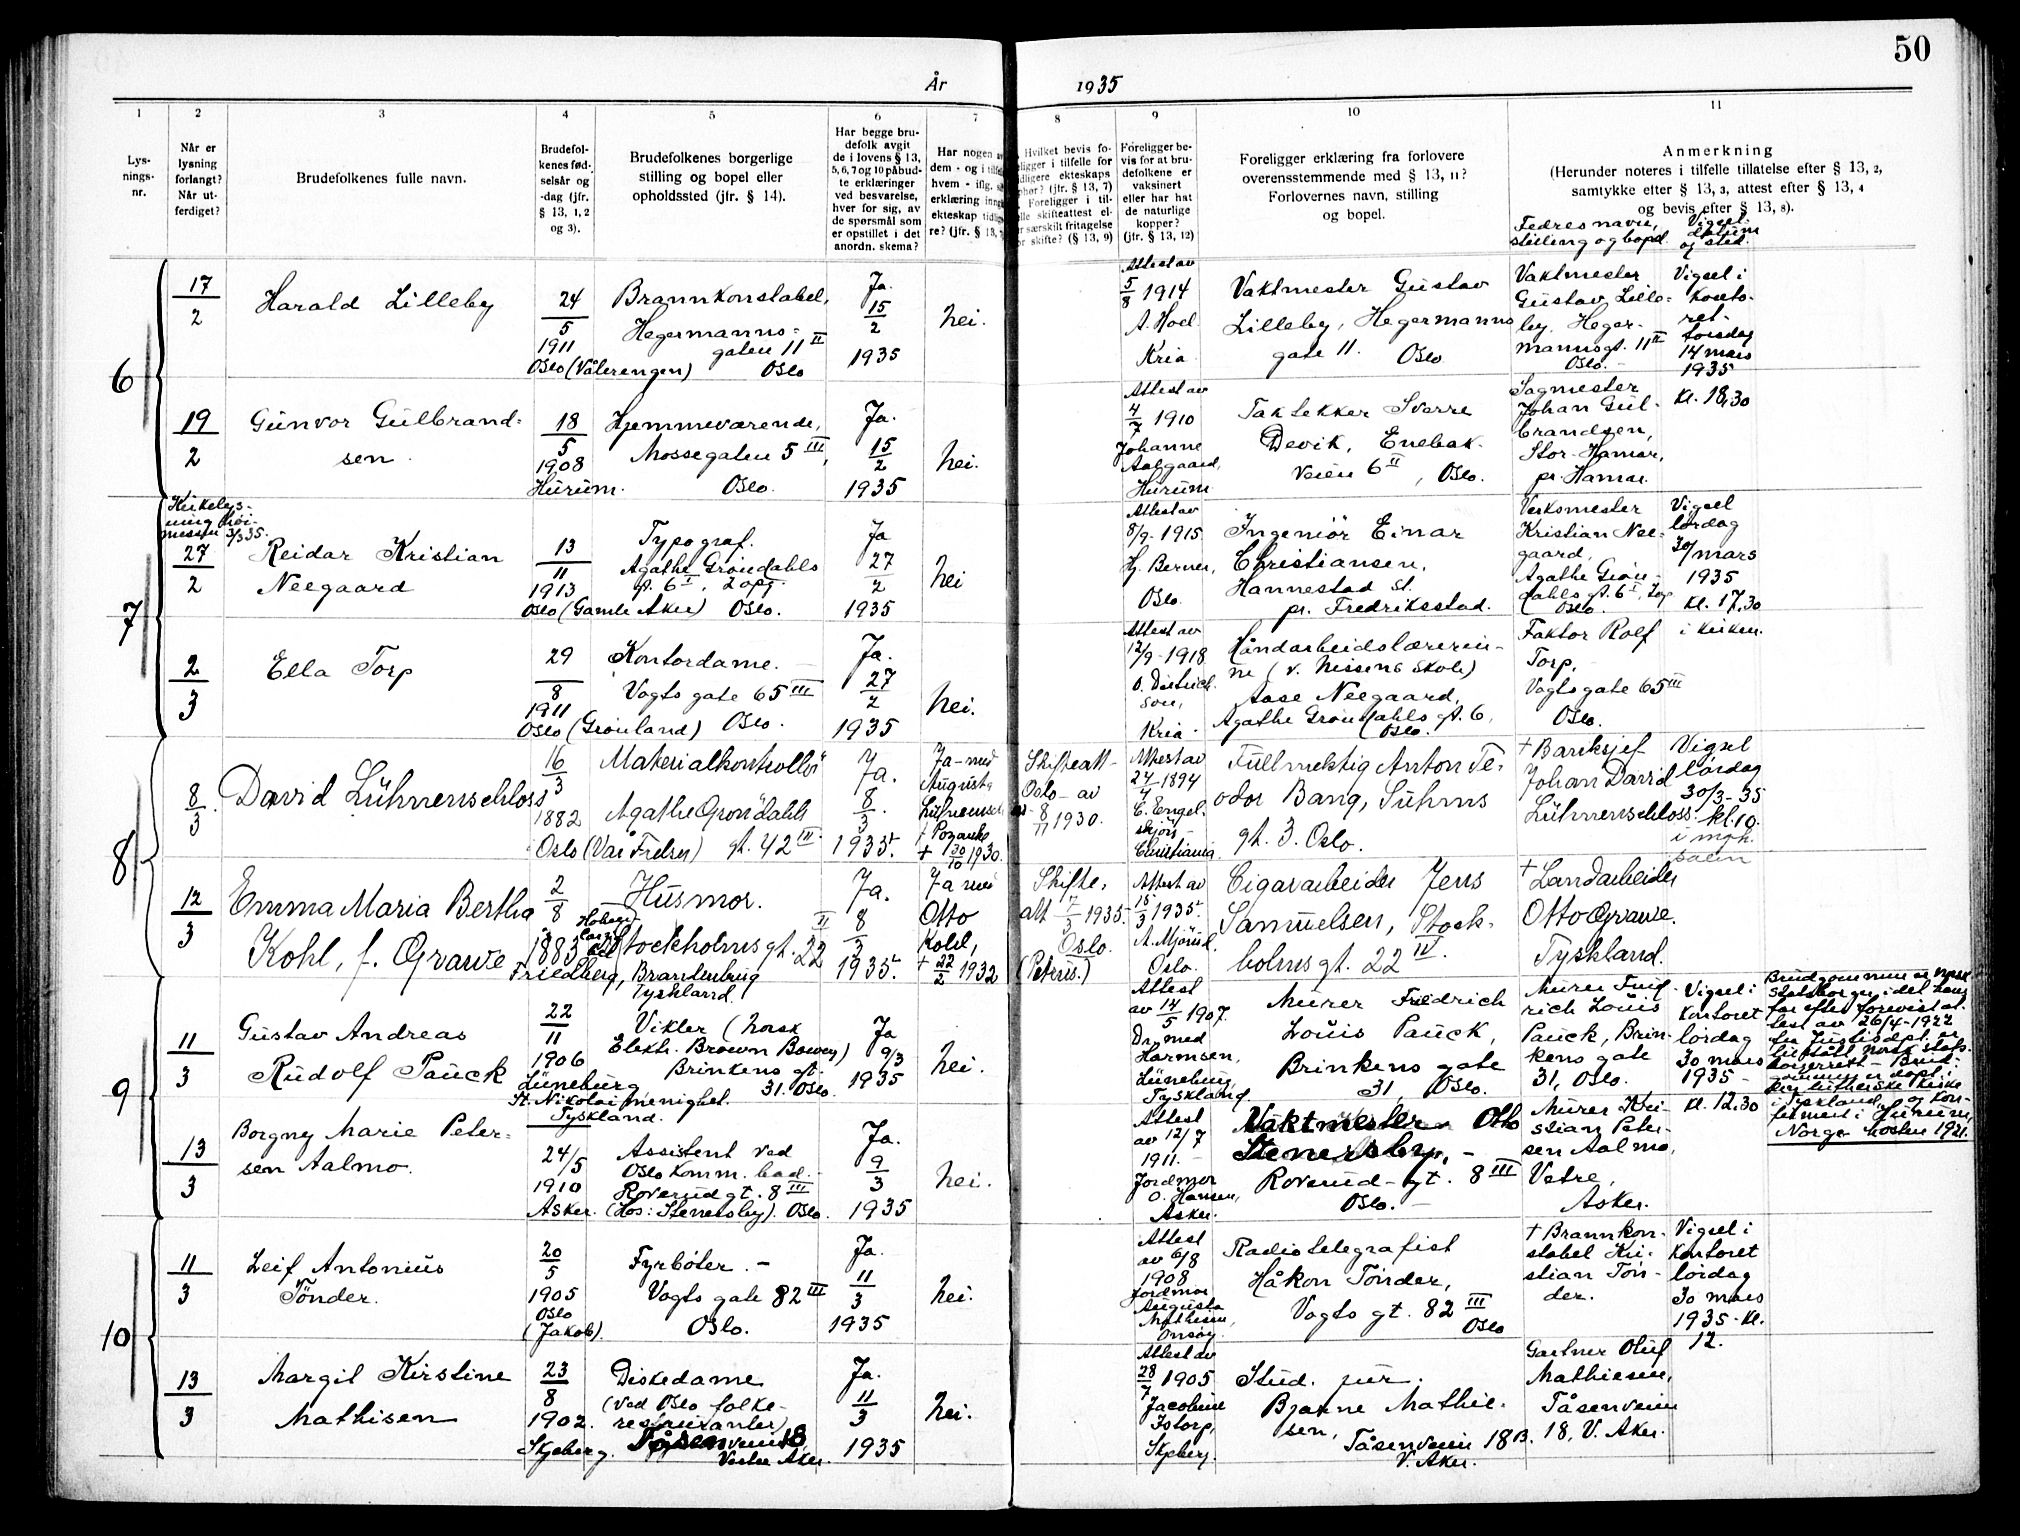 50
År 1935
1 2 3 4 5 6 7 8 9 10 11
Lys-
nings-
nr.
Når er
lysning
forlangt?
Når ut-
ferdiget?
Brudefolkenes fulle navn.
Brudefol-
kenes fød-
selsår og
-dag (jfr.
§ 13, 1, 2
og 3).
Brudefolkenes borgerlige
stilling og bopel eller
opholdssted (jfr. § 14).
Har begge bru-
defolk avgit
de i lovens § 13,
5, 6, 7 og 10 påbud-
te erklæringer
ved besvarelse,
hver for sig, av
de spørsmål som
er opstillet i det
anordn. skema?
Har nogen
dem - og i
hvem - iflg.
erklæring
ekteskap
re? (jfr. § 13,
Hvilket bevis fo-
religger i tilfelle for
tidligere ekteskaps
ophør? (jfr. § 13, 7)
Foreligger i til-
felle skifteattest el-
særskilt fritagelse
skifte? (§ 13, 9)
Foreligger be-
vis for at bru-
defolkene er
vaksinert
eller har hat
de naturlige
kopper?
(jfr. § 13, 12)
Foreligger erklæring fra forlovere
overensstemmende med § 13, 11?
Forlovernes navn, stilling
og bopel.
Anmerkning
(Herunder noteres i tilfelle tillatelse efter § 13, 2,
samtykke efter § 13, 3, attest efter § 13, 4
og bevis efter § 13, 8).
Fedres navn,
stilling og bopel.
Vigsel-
datum
og sted.
6
17/2
Harald Lilleby
24/5
1911
Oslo (Vålerengen)
Brannkonstabel,
Hegermanns-
gaten 11 II
Oslo
Ja.
15/2
1935
Nei.
Attest av
5/8 1914
A. Hoel
Kria
Vaktmester Gustav
Lilleby, Hegermanns
gate 11. Oslo
Vaktmester
Gustav Lille-
by, Heger-
mannsgt. 11 II
Oslo.
Vigsel i
Konto-
ret
torsdag
14 mars
1935
Kl. 18,30
19/2
Gunvor Gulbrand-
sen.
18/5
1908
Hurum.
Hjemmeværende,
Mossegaten 5 III,
Oslo.
Ja.
15/2
1935
Nei.
Attest av
4/7 1910
Johanne
Aalgaard,
Hurum
Taktekker Sverre
Devik, Enebak-
veien 6 II, Oslo.
Sagmester
Johan Gul-
brandsen,
Stor-Hamar,
pr. Hamar.
7
Kirkelys-
ning høi-
messen 3/3 35.
27/2
Reidar Kristian
Neegaard
13/11
1913
Oslo (Gamle Aker)
Typograf.
Agathe Grøndahls
gt. 6 I, 2 opg.
Oslo.
Ja
27/2
1935
Nei
Attest av
8/9-1915
Hj. Berner,
Oslo.
Ingeniør Einar
Christiansen,
Hannestad St.
pr. Fredriksstad.
Verksmester
Kristian Nee-
gaard,
Agathe Grøn-
dahls gt. 6 I, 2 op
Oslo.
Vigsel
lørdag
30/mars
1935
kl. 17,30
i kirken.
2/3
Ella Torp
29/8
1911
Oslo (Grønland)
Kontordame.
Vogts gate 65 III
Oslo.
Ja.
27/2
1935
Nei.
Attest av
12/9-1918
O. Dietrich-
son,
Kria.
Håndarbeidslærerin-
ne (v. Nissens skole)
Aase Neegaard,
Agathe Grøndahls gt. 6,
Oslo.
Faktor Rolf
Torp,
Vogts gate 65 III
Oslo.
8
8/3
David Lühnenschloss
16/3
1882
Oslo (Vår Frelser)
Materialkontrollør
Agathe Grøndahls
gt. 42 III.
Ja.
8/3
1935.
Ja - med
Augusta
Lühnensch
f. Poganke
+ 30/10 1930.
Skifteatt-
Oslo - av
8/11 1930.
Attest av
24/4 1894
C. Engel-
skjøn
Christiania.
Fullmektig Anton Te-
odor Bang, Suhms
gt. 3. Oslo.
+ Banksjef
Johan David
Lühnenschloss.
Vigsel
lørdag
30/3-35
kl. 10.
i mgh.
salen
12/3
Emma Maria Bertha
Kohl, f. Grawe
2/8
1883
Friedberg, Brandenburg
Tyskland.
Husmor.
Stockholmsgt. 22 II
Ja.
8/3
1935.
Ja med
Otto
Kohl,
+ 22/2 1932
Skifte,
att 7/3 1935.
Oslo.
(Petrus.)
Attest av
15/3 1935.
A. Mjøen.
Oslo.
Cigararbeider Jens
Samuelsen, Stock-
holmsgt. 22 IV.
+ Landarbeider
Otto Grawe.
Tyskland.
9
11/3
Gustav Andreas
Rudolf Pauck
22/11
1906
Lüneburg,
St. Nikolai menighet.
Tyskland.
Vikler (Norsk
Elektr. Brown Bowery)
Brinkens gt.
31. Oslo.
Ja
9/3
1935
Nei.
Attest
av 14/5 1907.
Dr. med
Harmsen,
Lüneburg,
Tyskland
Murer Friedrich
Louis Pauck,
Brinkens gate
31, Oslo.
Murer Fried-
rich Louis
Pauck, Brin-
kens gate
31, Oslo.
Vigsel i
Kontoret
lørdag
30 mars
1935 -
Kl. 12,30
Brudgommen er norsk
statsborger, i det han
efter forevist at-
test av 26/4-1922
fra Justisdpt. er
norsk stats-
borgerrett - Brud-
gommen er døpt i
den lutherske kirke
i Tyskland, og kon-
firmert i Hurum,
Norge høsten 1921.
13/3
Borgny Marie Peter-
sen Aalmo.
24/5
1910
Asker.
Assistent ved
Oslo Komm. bad. -
Roverudgt. 8 III
(hos: Stenersby). Oslo.
Ja.
9/3
1935
Nei.
Attest
av 12/7
1911. -
Jordmor
O. Hansen,
Asker.
Vaktmester Otto
Stenersby, -
Roverud-gt. 8 III
Oslo. -
Murer Kri-
stian Peter-
sen Aalmo,
Vetre,
Asker.
10
11/3
Leif Antonius
Tønder.
20/5
1905
Oslo
(Jakob).
Fyrbøter. -
Vogts gate 82 III
Oslo.
Ja.
11/3
1935
Nei.
Attest
av 6/8
1908
Jordmor
Augusta
Mathisen,
Onsøy.
Radiotelegrafist
Håkon Tønder,
Vogts gt. 82 III
Oslo
+ Brannkon-
stabel Kri-
stian Tøn-
der.
Vigsel i
Kontoret
lørdag
30 mars
1935 - Kl.
12.
13/3
Margit Kirstine
Mathisen
23/8
1902.
Skjeberg.
Diskedame
(ved Oslo folke-
restauranter)
Tåsenveien 18,
Vestre Aker.
Ja.
11/3
1935
Nei.
Attest av
28/7 1905
Jacobine
Istorp,
Skjeberg.
Stud. jur.
Bjarne Mathie-
sen,
Tåsenveien 18 B.
V. Aker.
Gartner Oluf
Mathiesen,
Tåsenveien
18, V. Aker.